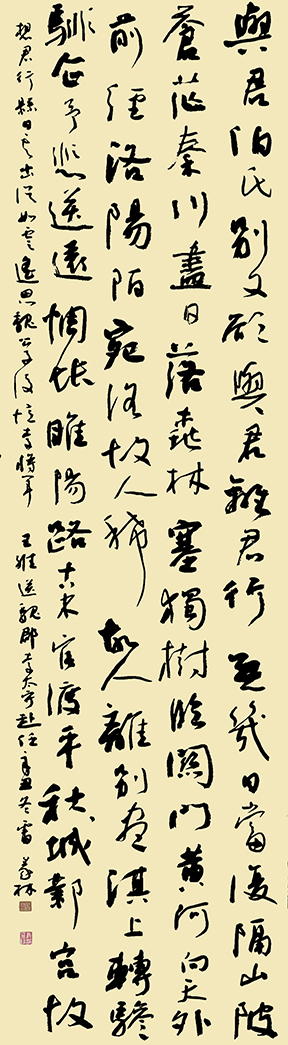 與君伯氏別又欲與君離君行無幾日當復隔山陂
蒼茫秦川盡日落桃林塞獨樹臨關門黃河向天外
前經洛陽陌宛洛故人稀故人離別盡淇上轉驂
騑企予悲送遠惆悵睢陽路古木官渡平秋城鄴宮故
想君行縣日其出從如雲遙思魏公子復憶李將軍 王維送魏郡李太守赴任辛丑冬雷義林